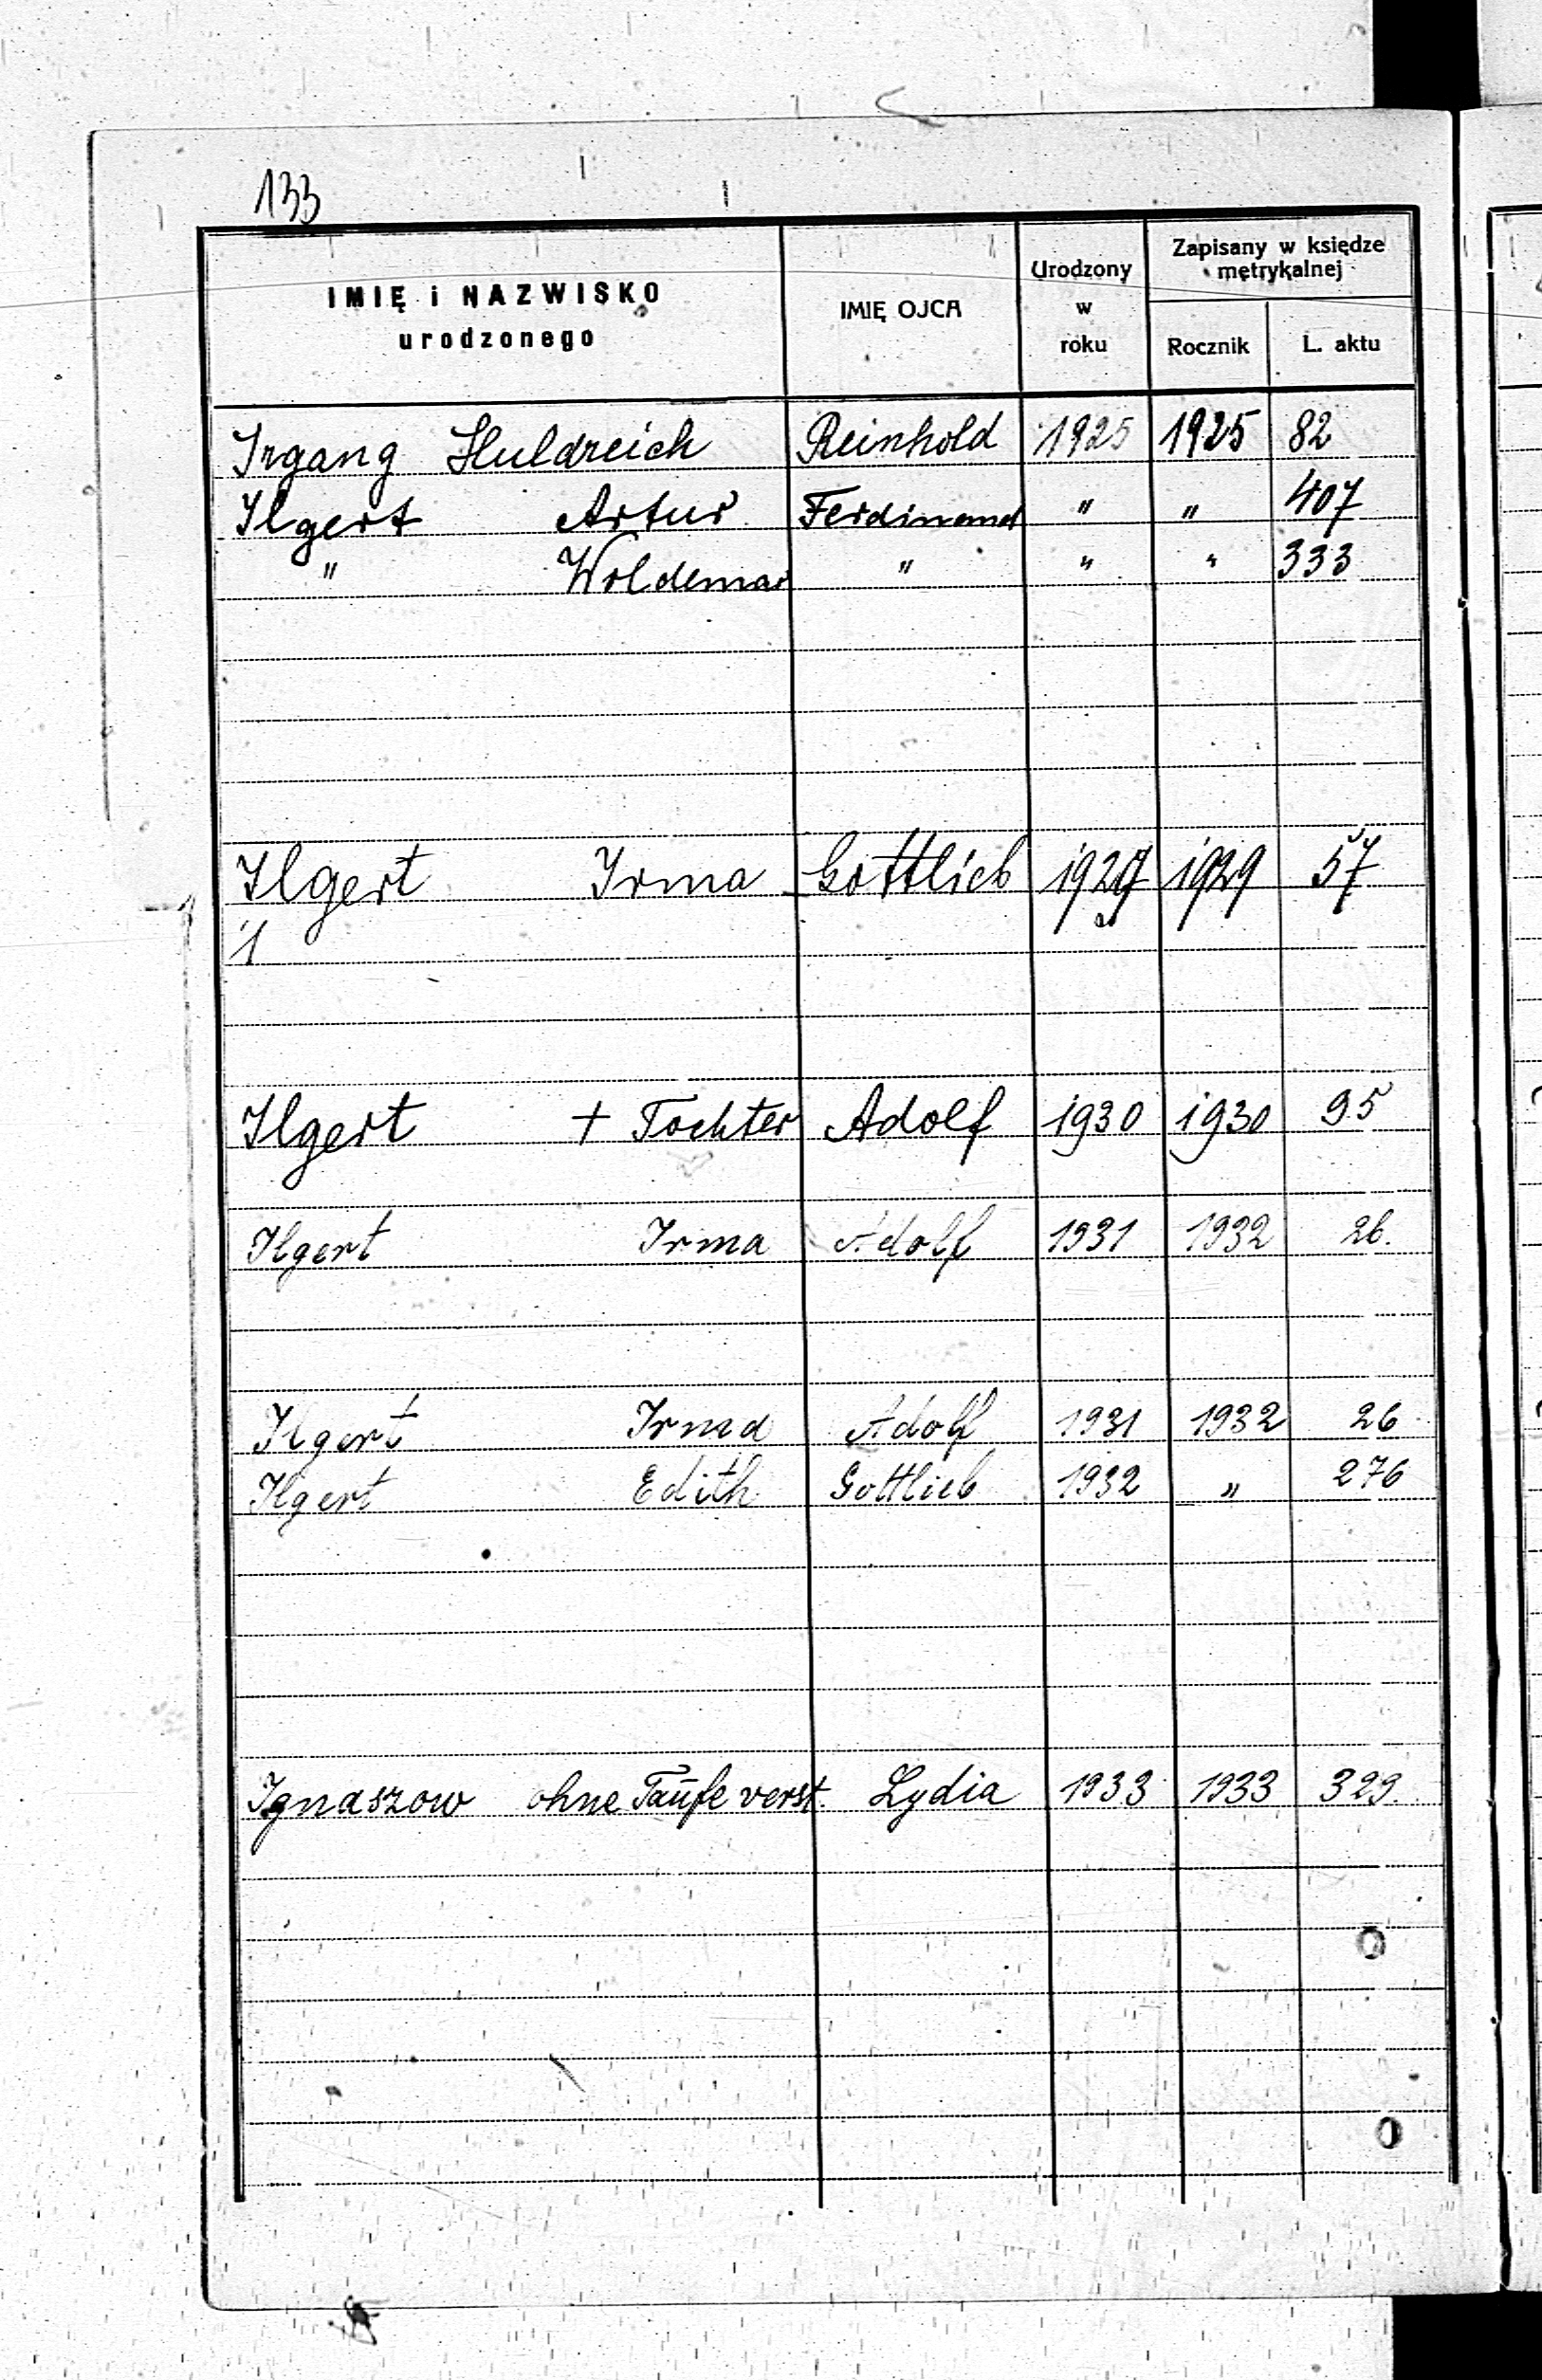 133
IMIĘ i NAZWISKO urodzonego IMIĘ OJCA Urodzony w roku Zapisany w księdze metrykalnej Rocznik L. aktu
Irgang Huldreich Reinhold 1925 1925 82
Ilgert Artur Ferdinand " " 407
" Woldemar " " " 333
Ilgert Irma Gottlieb 1929 1929 57
Ilgert + Tochter Adolf 1930 1930 95
Ilgert Irma Adolf 1931 1932 26.
Ilgert Irma Adolf 1931 1932 26
Ilgert Edith Gottlieb 1932 " 276
Ignaszow ohne Taufe verst. Lydia 1933 1933 329.